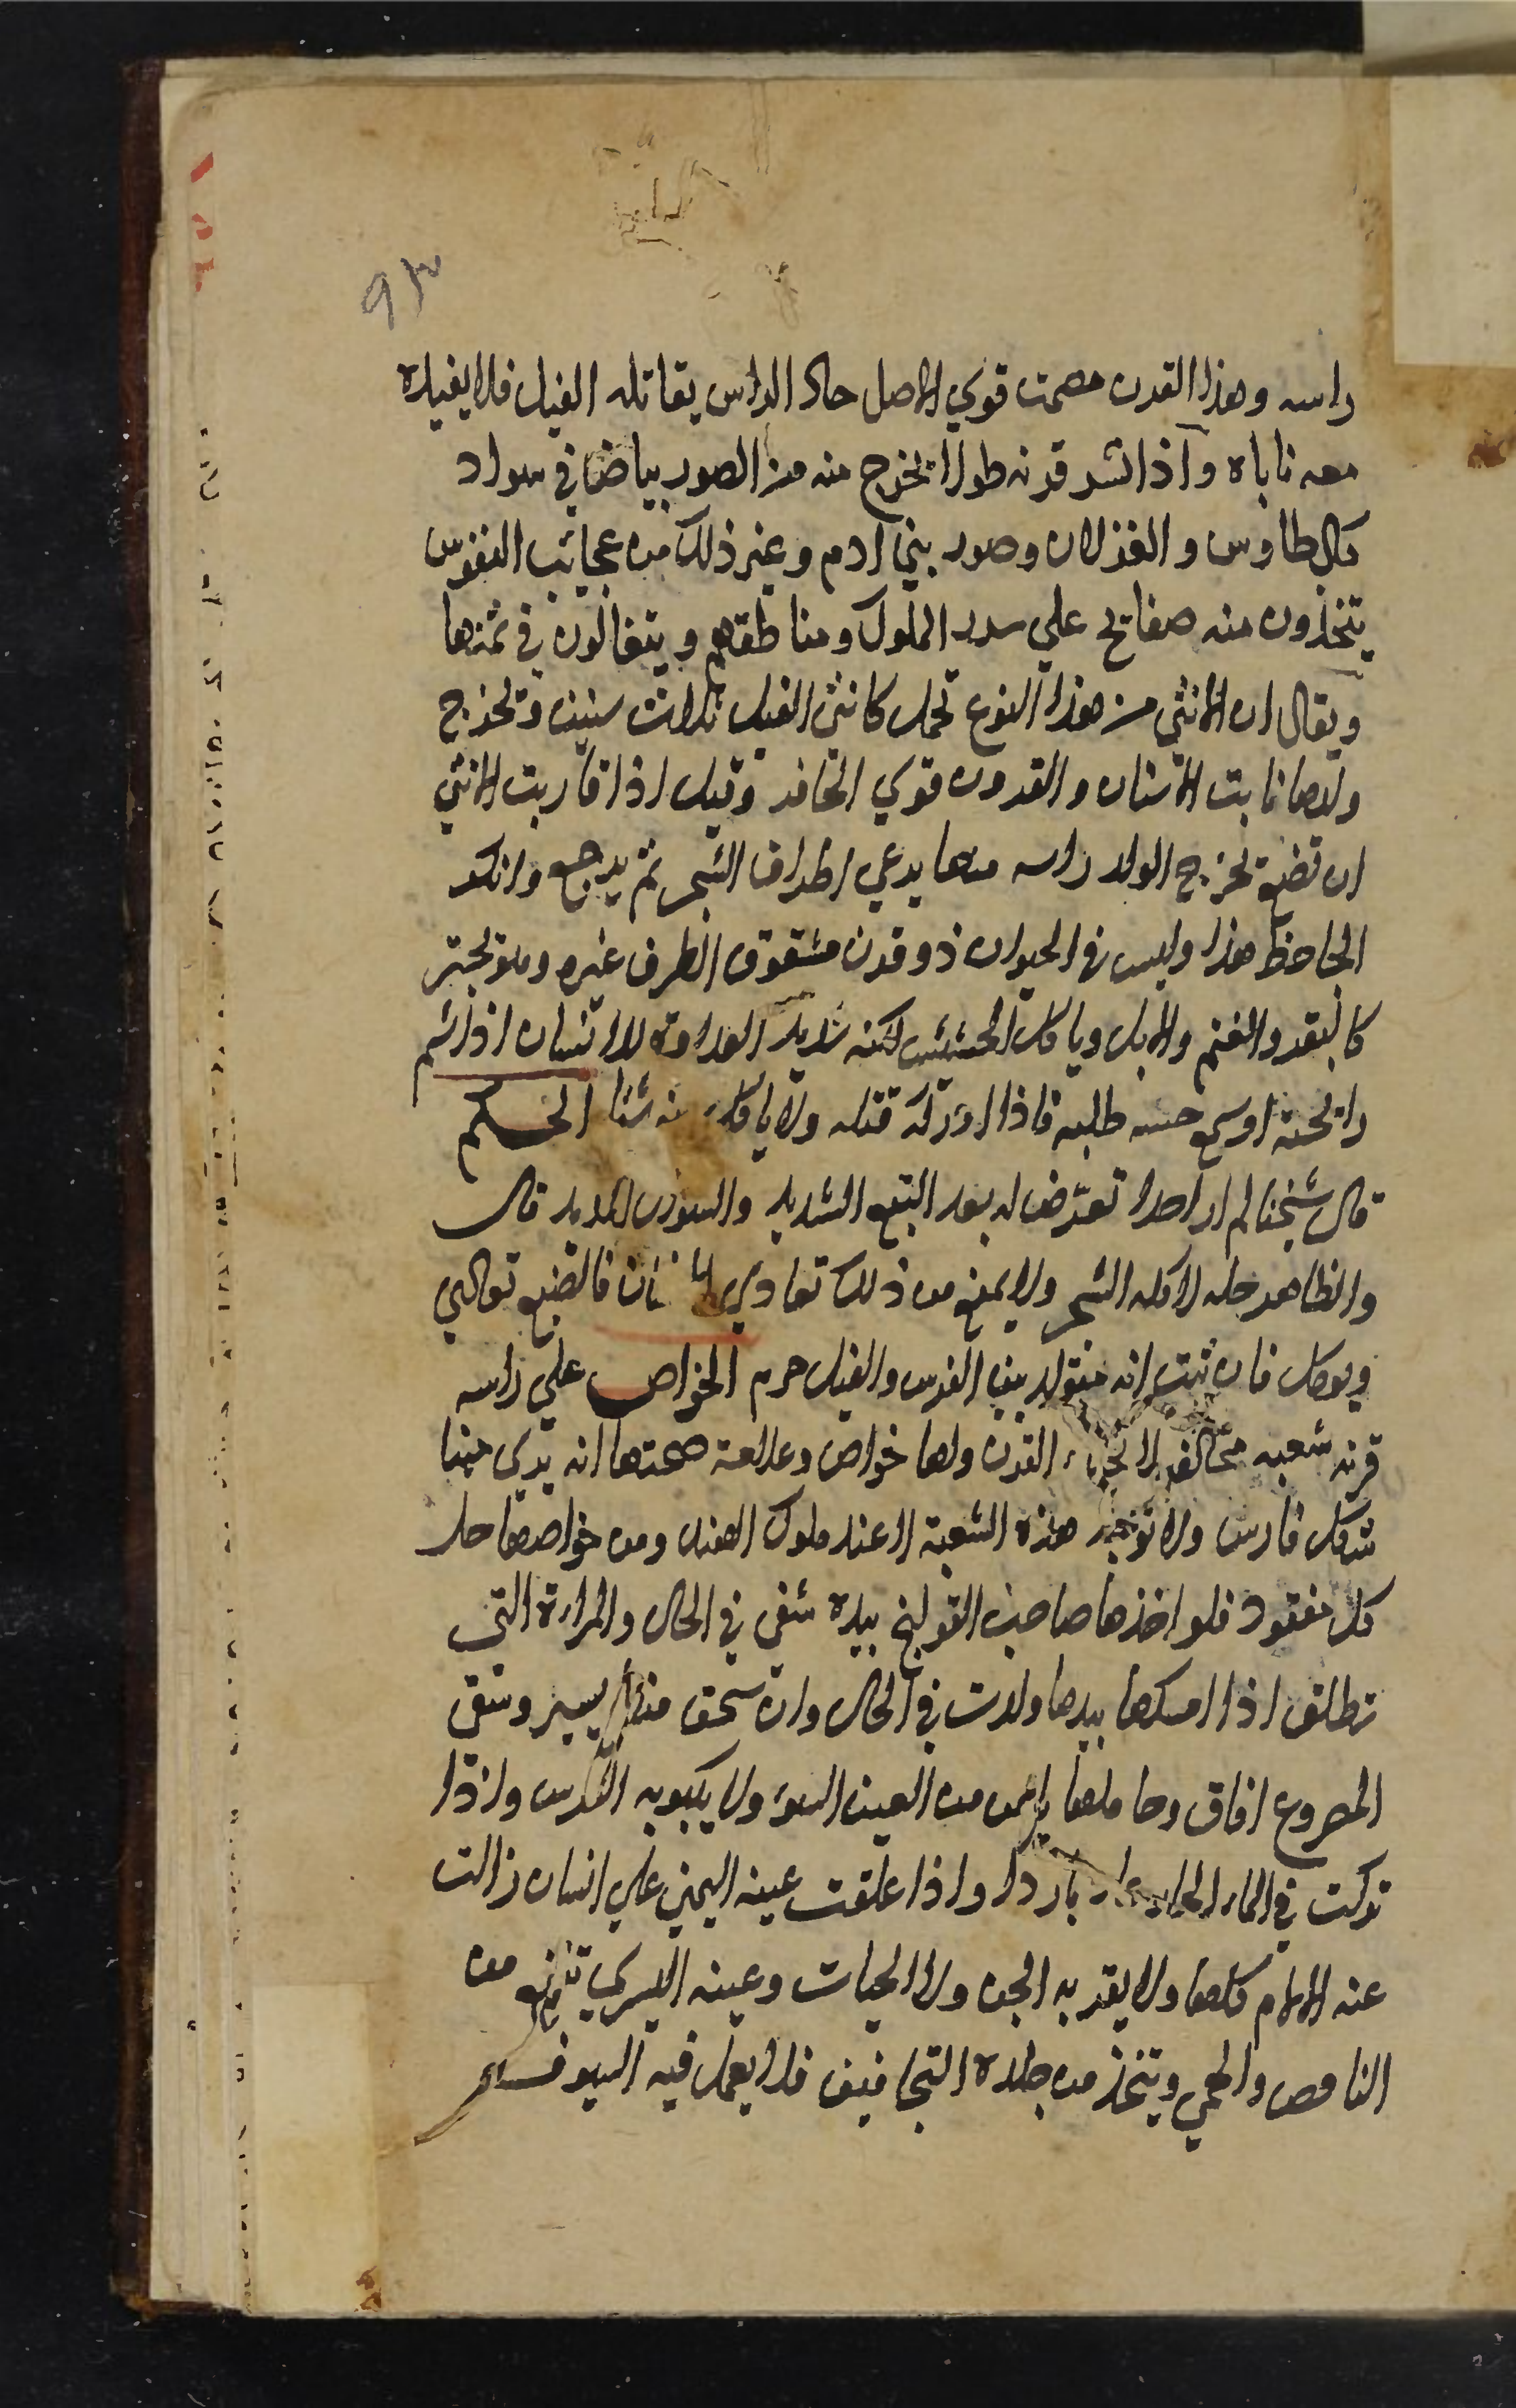 ٩٣
راسه وهذا القرن مصمت قوي الاصل حاد الراس يقاتله الفيل فلا يفيده
معه ناباه واذا نشر قرنه طولا تخرج منه من الصور بياضا في سواد
كالطاوس والغزلان وصور بني ادم وغير ذلك من عجائب النقوس
يتخذون منه صفائح علي سرر الملوك ومناطقهم ويتغالون في ثمنها
ويقال ان الانثي من هذا النوع تحمل كانثي الفيل ثلاث سنين وتخرج
ولدها نابت الاسنان والقرون قوي الحافر وقيل اذا قاربت الانثي
ان تضع تخرج الولد راسه منها يرعي اطراف الشجر ثم يرجع وانكر
الجاحظ هذا وليس في الحيوان ذو قرن مشقوق الظرف غيره وهو يجتر
كالبقر والغنم والابل وياكل الحشيش لكنه شديد العداوة للانسان اذا شم
رائحته او سمع حسه طلبه فاذا ادركه قتله ولا ياكل منه شئا الحكم
قال شيخنا لم ار احدا تعرض له بعد التتبع الشديد والسوال المديد قال
والظاهر حله لاكله الشجر ولا يمنع من ذلك تعاديه الانسان فالضبع تعادي
ويوكل فان ثبت انه متولد بين الفرس والفيل حرم الخواص علي راسه
قرنه شعبه مخالفه لانحناء القرن ولها خواص وعلامة صحتها انه يري منها
شكل فارس ولا توجد هذه الشعبة الا عند ملوك الهند ومن خواصها حل
كل معقود فلو اخذها صاحب القولنج بيده شفي في الحال والمراة التي
تطلق اذا امسكها بيدها ولدت في الحال وان سحق منها يسير وسقي
المصروع افاق وحاملها يامن من العين السوء ولا يكبو به الفرس واذا
تركت في الماء الحار عاد باردا واذا علقت عينه اليمني علي انسان زالت
عنه الالام كلها ولا يقربه الجن ولا الحيات وعينه اليسري تنفع من
النافض والحمي ويتخذ من جلده التجافيف فلا يعمل فيه السيوف